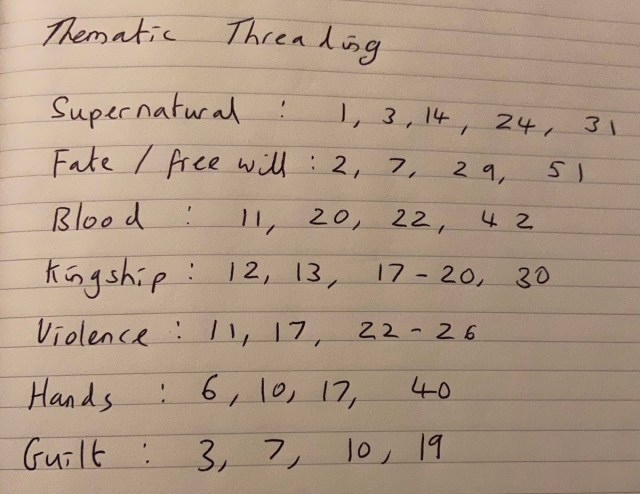 Thematic Threading
Supernatural : 1, 3, 14, 24, 31
Fate / free will : 2, 7, 29, 51
Blood : 11, 20, 22, 42
Kingship : 12, 13, 17-20, 30
Violence : 11, 17, 22-26
Hands : 6, 10, 17, 40
Guilt : 3, 7, 10, 19